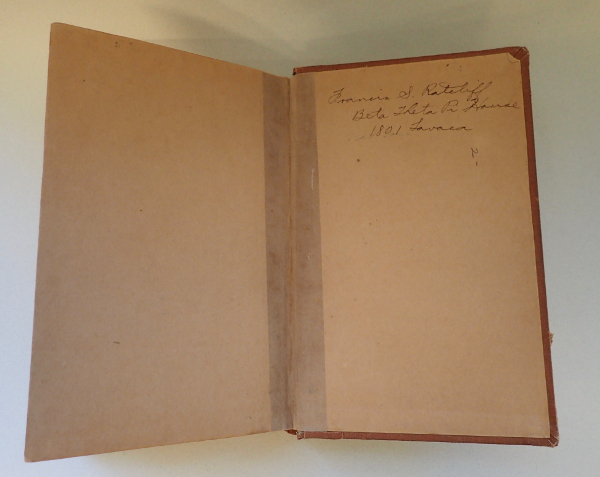 Francis S. Ratcliff
Beta Theta Pi House
1801 Lavaca